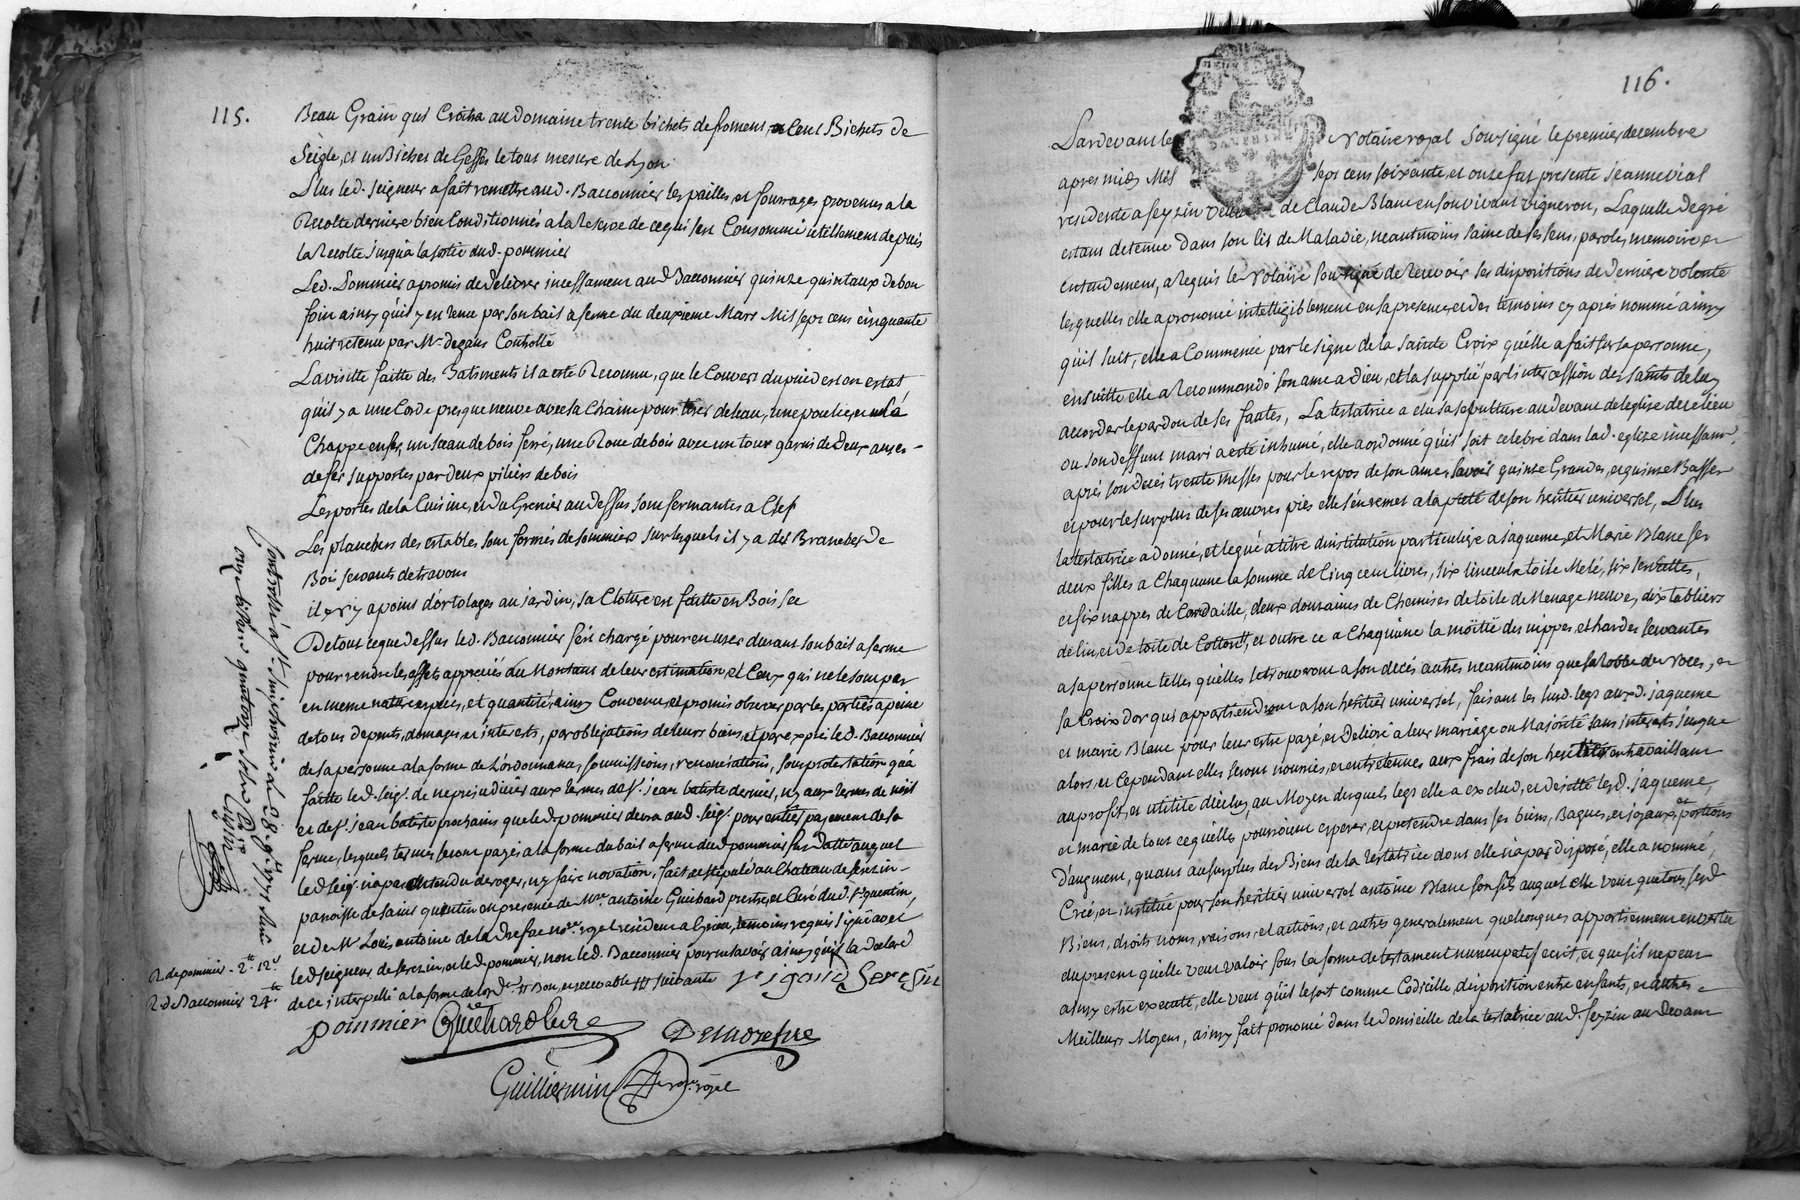 115.
Beau Grain qui Croitra au domaine trente bichets de froment, Cent Bichets de
Seigle, et un Bichet de Gesses le tout mesure de Lyon
Plus led. seigneur a fait remettre aud. Bacconnier les pailles, et fourrages provenus a la
Recolte derniere bien Conditionnés a la Reserve de ce qui s'est Consommé utillement depuis
la Recolte jusqu'a la sortie dud. pommier
Led. Pommier a promis de delivrer incessament aud Bacconnier quinze quintaux de bon
foin ainsy qu'il y en tenu par son bail a ferme du deuxieme Mars Mil sept cens cinquante
huit retenu par Mr. degaus Controllé
La visitte faitte des Batiments il a esté Reconnu, que le Couvert du puid est en estat
qu'il y a une Corde presque neuve avec sa Chaine pour tirer de leau, une poulie, et sa
Chappe en fer, un sceau de bois ferré, une Roue de bois avec un tour garni de deux anses
de fer supportés par deux piliers de bois
Les portes de la Cuisine, et du Grenier au dessus sont fermantes a Clef
Les planchers des estables sont formés de sommiers sur lesquels il y a des Branches de
Bois servants de travons
il n'y a point d'ortolages au jardin, sa Cloture est faitte en Bois sec
De tout ce que dessus led. Bacconnier s'est chargé pour en user durant son bail a ferme
pour rendre les effets appreciés du Montant de leur estimation, et Ceux qui ne le sont pas
en meme nature espece, et quantité, ainsy Convenu, et promis observer par les parties a peine
de tous depents, domages, et interests, par obligations de leurs biens, et par exprés led. Bacconnier
de sa personne a la forme de L'ordonnance, soumissions, renonciations, sous protestation qu'a
faitte led. seigr. de ne prejudicier aux termes de St. jean batiste dernier, ny aux termes de noël
et de St. jean batiste prochains que led. pommier devra aud. seigr. pour entier payement de sa
ferme, lesquels termes seront payés a la forme du bail a ferme dud pommier susdatté auquel
led seigr. n'a pas entendu deroger, ny faire novation, fait, et stipulé au Chateau de serezin
paroisse de saint quentin en presence de Mre. antoine Guichard prestre, et Curé dud. St. quentin,
et de Mr. Louis antoine de la drefue nore. royal resident a heyrieu, temoins requis signé avec
led seigneur de serezin, et led pommier, non led. Bacconnier pour ne savoir ainsy qu'il la declaré
de ce interpellé a la forme de lordce. Bon, et recevable suivante
Vigaud Seresin
pommier Guichard Curé
Delladrefue
Guillermin nore. royal
R de pommier - 2tt 12s
R de Bacconnier 24tt
Controllé a St. Simphorien le 8. xbre 1771 Recu
onze livres quatorze sols
116.
Pardevant le Notaire royal soussigné le premier decembre
apres midy Mil sept cens soixante, et onze fut presente jeanne vial
residente a feyzin veuve de Claude Blanc en son vivant vigneron, Laquelle de gré
estant detenue dans son lit de Maladie, neantmoins saine de ses sens, parole, memoire, et
entendement, a requis le Notaire soussigné de recevoir ses dispositions de derniere volonté
lesquelles elle a prononcé intelligiblement en sa presence, et des temoins cy aprés nommé ainsy
qu'il suit, elle a Commencé par le signe de la sainte Croix qu'elle a fait sur sa personne,
ensuitte elle a Recommandé son ame a dieu, et la supplié par l'intercession des saints de luy
accorder le pardon de ses fautes, La testatrice a elu sa sepulture au devant de leglise de ce lieu
ou son deffunt mari a esté inhumé, elle a ordonné qu'il soit celebré dans lad. eglize incessamt.
aprés son decés trente messes pour le repos de son ame savoir quinze Grandes, et quinze Basses
et pour le surplus de ses œuvres pies elle s'en remet a la pieté de son heritier universel, Plus
la testatrice a donné, et legué a titre d'institution particuliere a jaqueme, et Marie Blanc ses
deux filles a Chaquune la somme de Cinq cent livres, six linceulx toile Melé, six serviettes,
et six nappes de Cordaille, deux douzaines de Chemises de toile de Menage neuve, dix tabliers
de lin, et de toile de Cotton, et outre ce a Chaquune la moitié des nippes, et hardes servantes
a sa personne telles qu'elles se trouveront a son decés autres neantmoins que sa Robbe de noces, et
sa Croix d'or qui appartiendront a son heritier universel, faisant les susd. legs auxd. jaqueme
et marie Blanc pour leur estre payé, et delivré a leur mariage ou Majorité sans interets jusque
alors, et cependant elles seront nourries, et entretenues aux frais de son heritier en travaillant
au profit, et utilité d'iceluy, au Moyen desquels legs elle a exclud, et desisté lesd. jaqueme,
et marie de tout ce qu'elles pourroient esperer, et pretendre dans ses biens, Bagues, et joyaux, et portions
d'augment, quant au surplus des Biens de la testatrice dont elle n'a pas disposé, elle a nommé,
Créé, et institué pour son heritier universel antoine Blanc son fils auquel elle veut que tous sesd
Biens, droits noms, raisons, et actions, et autres generalement quelconques appartiennent en vertu
du present qu'elle veut valoir sous la forme de testament nuncupatif ecrit, et que s'il ne peut
ainsy estre executé, elle veut qu'il le soit comme Codicille disposition entre enfants, et autres
Meilleurs Moyens, ainsy fait prononcé dans le domicille de la testatrice aud. feyzin au devant